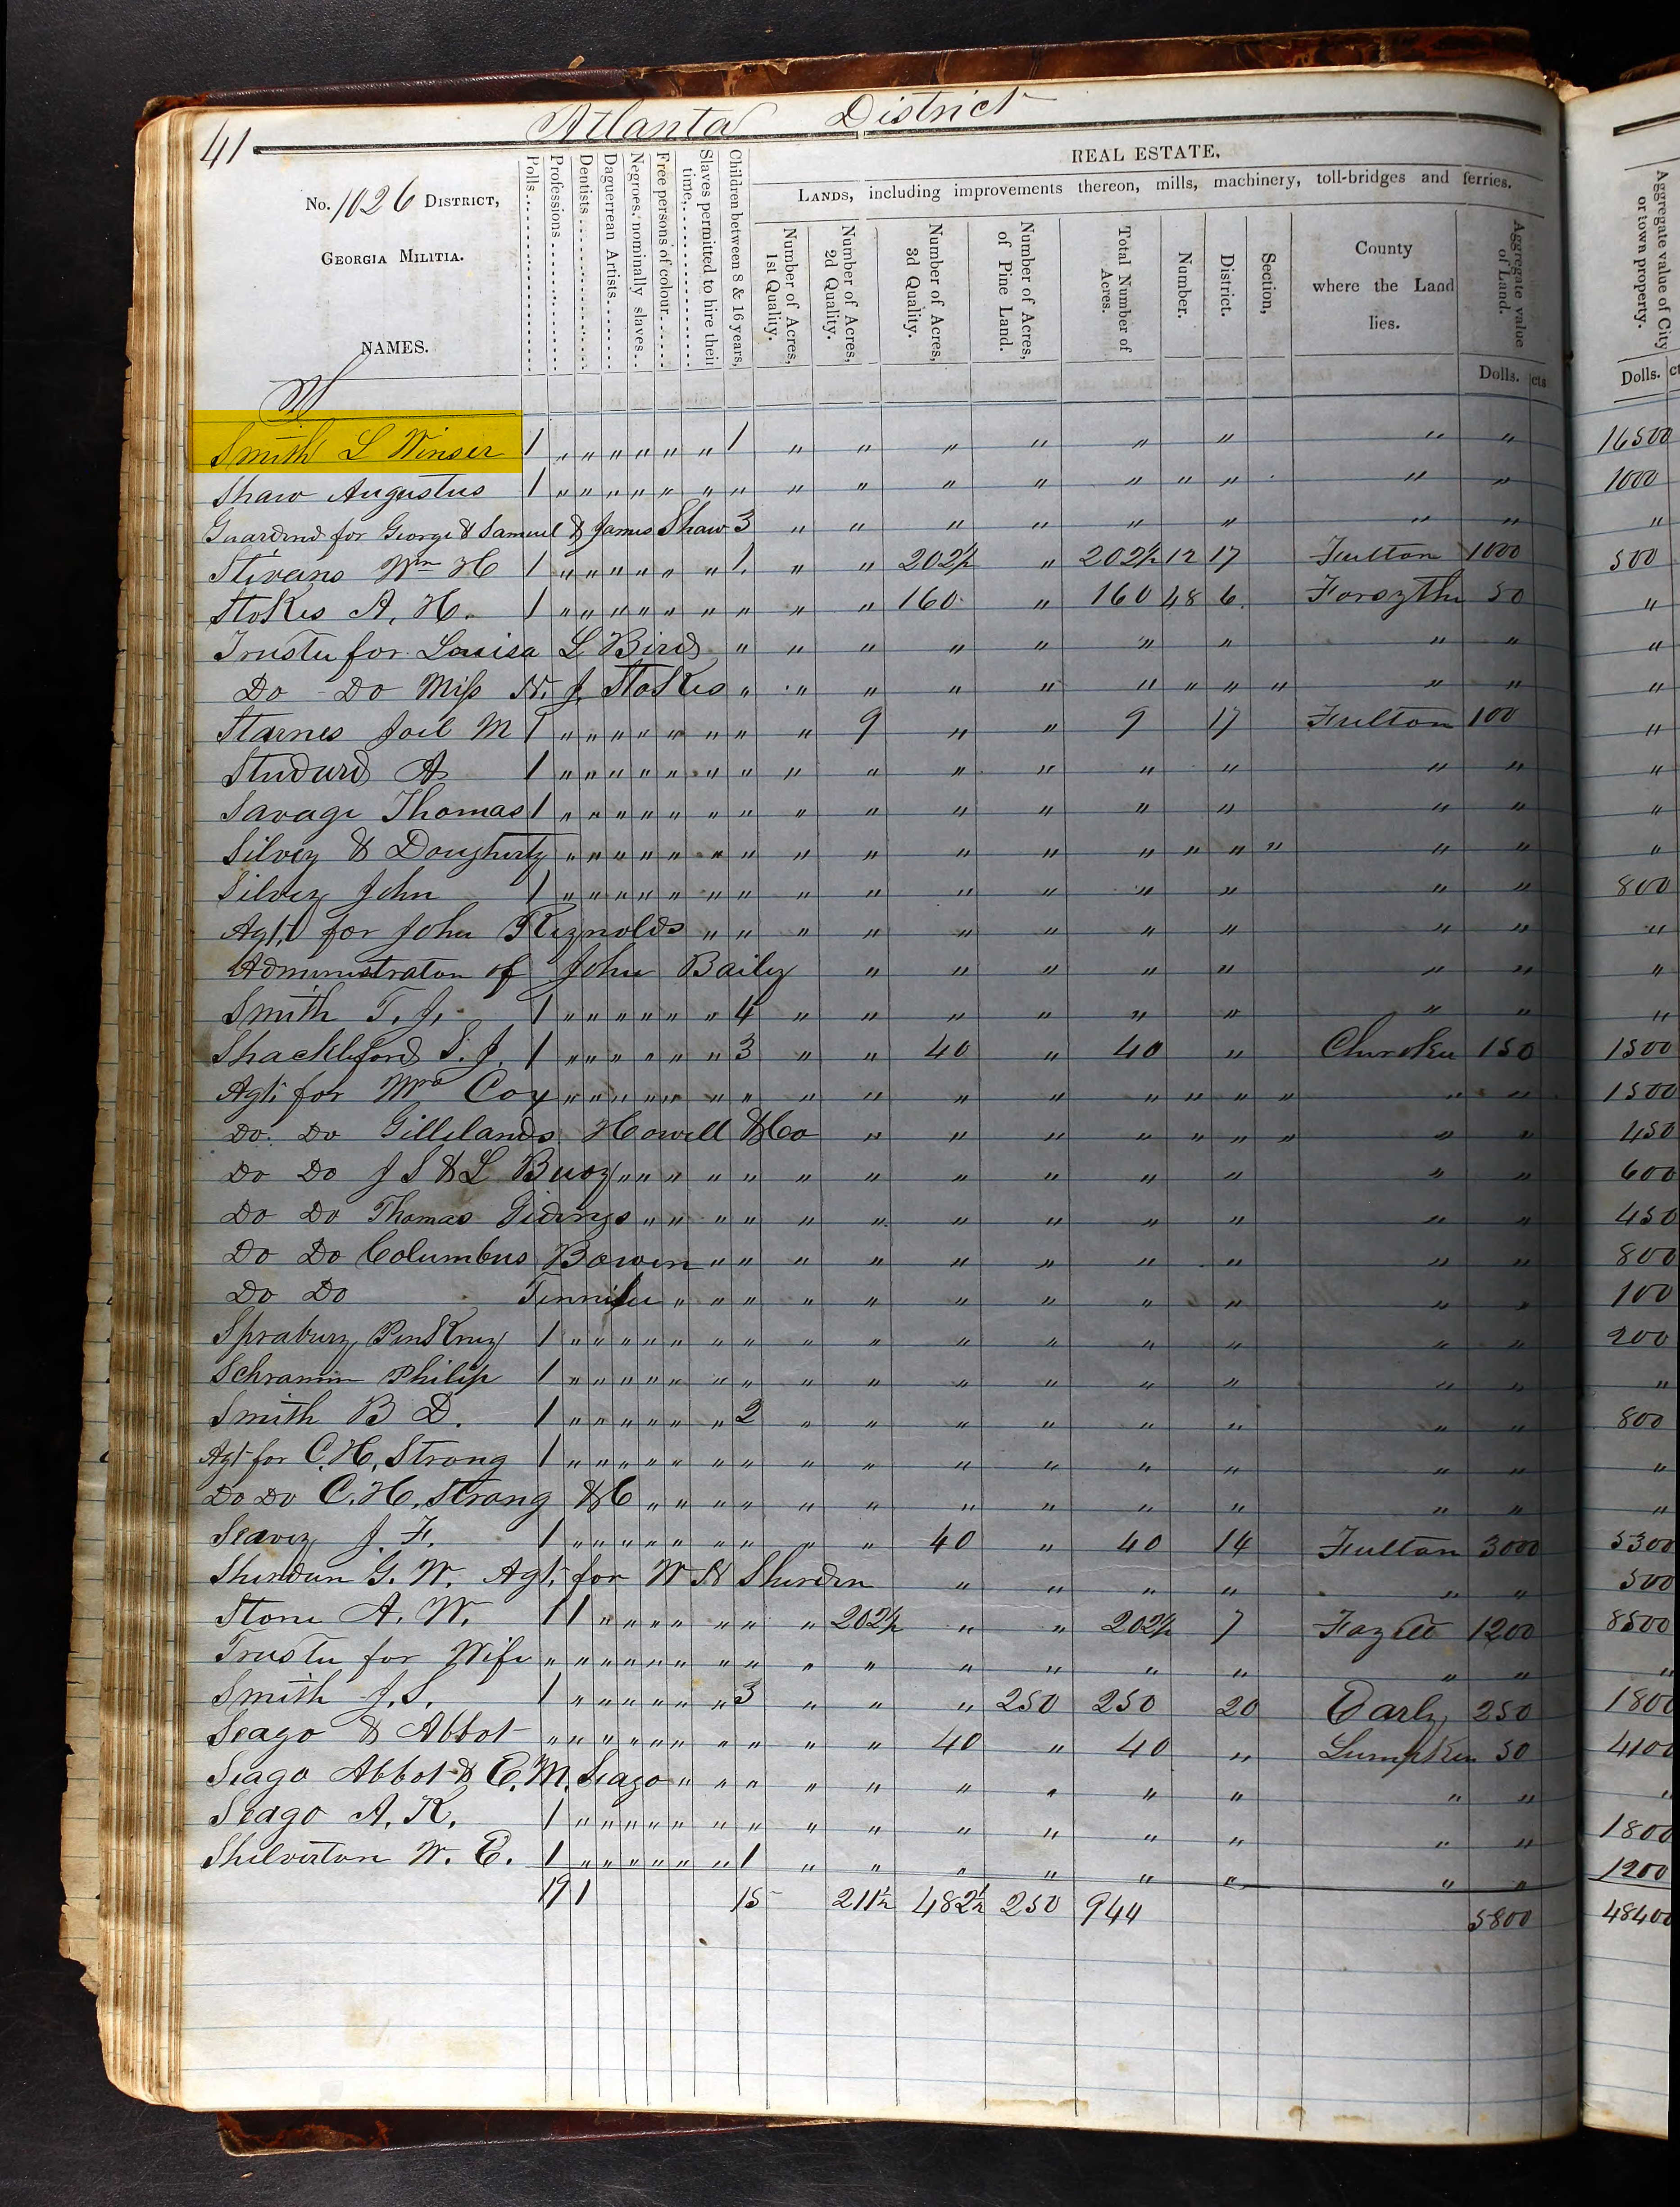 41 Atlanta District
No. 1026 DISTRICT,
GEORGIA MILITIA.
NAMES.
Polls
Professions
Dentists
Daguerrean Artists
Negroes, nominally slaves
Free persons of colour
Slaves permitted to hire their time,
Children between 8 & 16 years,
REAL ESTATE,
LANDS, including improvements thereon, mills, machinery, toll-bridges and ferries.
Number of Acres, 1st Quality.
Number of Acres, 2d Quality.
Number of Acres, 3d Quality.
Number of Acres, of Pine Land.
Total Number of Acres.
Number.
District.
Section,
County where the Land lies.
Aggregate value of Land.
Dolls. cts
Aggregate value of City or town property.
Dolls. ct
S
Smith L Winser 1 " " " " " " 1 " " " " " " " " 16500
Shaw Augustus 1 " " " " " " " " " " " " " " " " 1000
Guardend for George & Samuel & James Shaw 3 " " " " " " " " "
Stivens Wm H 1 " " " " " " 1 " " 202½ " 202½ 12 17 Fulton 1000 500
Stokes A. H. 1 " " " " " " " " " 160 " 160 48 6 Forsythe 50 "
Truste for Louisa L Bird " " " " " " " " " "
Do Do Miss N. J. Stokes " " " " " " " " " " " "
Starnes Joel M 1 " " " " " " " " 9 " " 9 17 Fulton 100 "
Studurd A 1 " " " " " " " " " " " " " " " "
Savage Thomas 1 " " " " " " " " " " " " " " " "
Silvey & Dougherty " " " " " " " " " " " " " " " " " "
Silvey John 1 " " " " " " " " " " " " " " " 800
Agt, for John Reynolds " " " " " " " " " " "
Administraton of John Baily " " " " " " " "
Smith T. J. 1 " " " " " " 4 " " " " " " " " "
Shackleford S. J. 1 " " " " " " 3 " " 40 " 40 " Cherokee 150 1500
Agt. for Mrs Cox " " " " " " " " " " " " " " " " " 1500
Do Do Gillelands Howell & Co " " " " " " " " " 450
Do Do J S & L Buoy " " " " " " " " " " " " " 600
Do Do Thomas Gidings " " " " " " " " " " " " 450
Do Do Columbus Bowen " " " " " " " " " " 800
Do Do " " " " " " " " " " " 100
Sprabury Pinkney 1 " " " " " " " " " " " " " " " 200
Schramm Philip 1 " " " " " " " " " " " " " " " "
Smith B D. 1 " " " " " " 2 " " " " " " " " 800
Agt for C. H. Strong 1 " " " " " " " " " " " " " " " "
Do Do C. H. Strong & C " " " " " " " " " " " " "
Seavey J. F. 1 " " " " " " " " " 40 " 40 14 Fulton 3000 5300
Sherdun G. W. Agt. for W N Sherden " " " " " " 500
Stone A. W. 1 1 " " " " " " " 202½ " " 202½ 7 Fayett 1200 8500
Truste for Wife " " " " " " " " " " " " " " " " "
Smith J. S. 1 " " " " " " 3 " " " 250 250 20 Early 250 1800
Seago & Abbot " " " " " " " " " " 40 " 40 " Lumpkin 50 4100
Seago Abbot & E. M. Seago " " " " " " " " " " " "
Seago A. K. 1 " " " " " " " " " " " " " " " 1800
Shelverton W. E. 1 " " " " " " 1 " " " " " " " " 1200
19 1 15 211½ 482½ 250 944 5800 48400